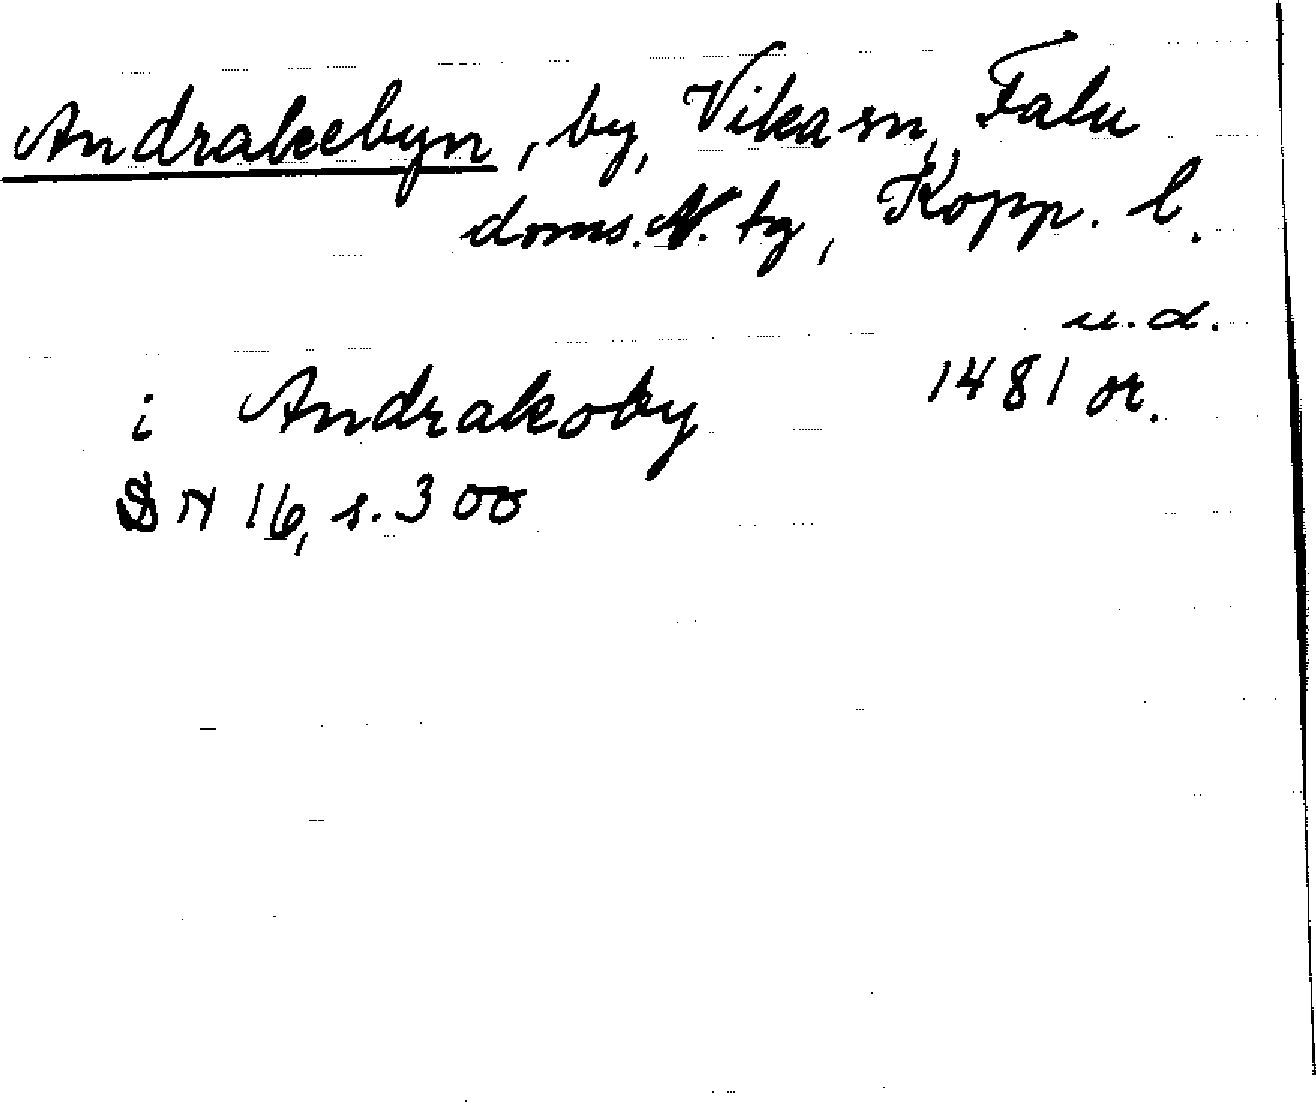 Andrakebyn, by, Vika sn, Falu
doms. N. tg, Kopp. l.
u.d.
i Andrakoby 1481 or.
SN 16, s. 300